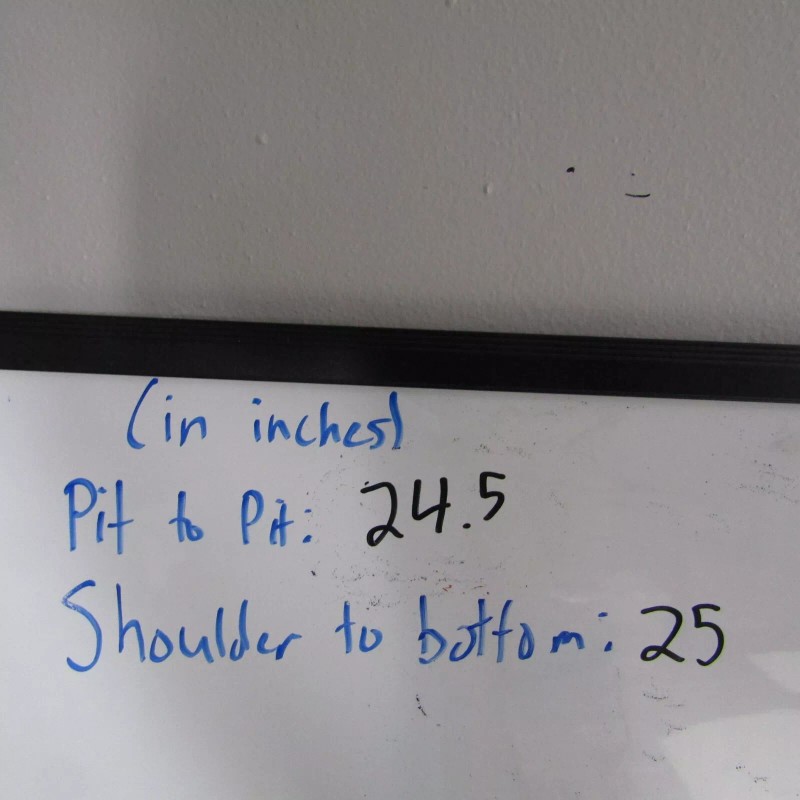 (in inches)
Pit to Pit: 24.5
Shoulder to bottom: 25